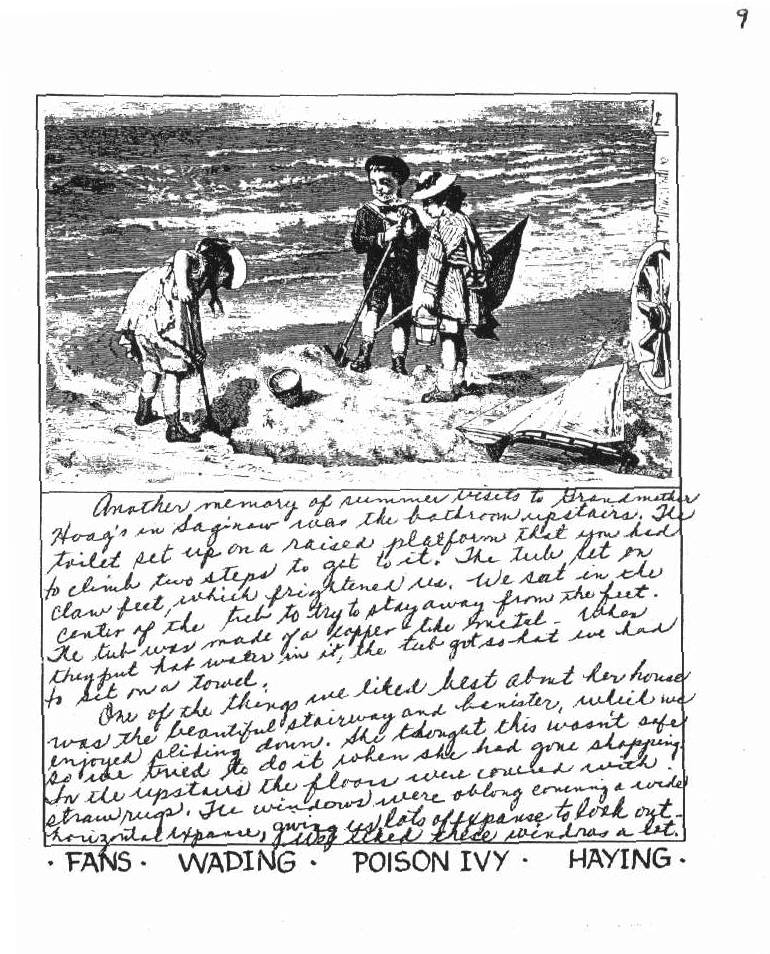 9
Another memory of summer visits to Grandmother
Hoag's in Saginaw was the bathroom upstairs. The
toilet set up on a raised platform that you had
to climb two steps to get to it. The tub set on
claw feet, which frightened us. We sat in the
center of the tub to try to stay away from the feet.
The tub was made of a copper like metal - When
they put hot water in it, the tub got so hot we had
to sit on a towel.
One of the things we liked best about her house
was the beautiful stairway and banister, which we
enjoyed sliding down. She thought this wasn't safe
so we tried to do it when she had gone shopping.
In the upstairs the floors were covered with
straw rugs. The windows were oblong covering a wide
horizontal expance, giving us lots of expanse to look out -
I just liked these windows a lot.
· FANS · WADING · POISON IVY · HAYING ·